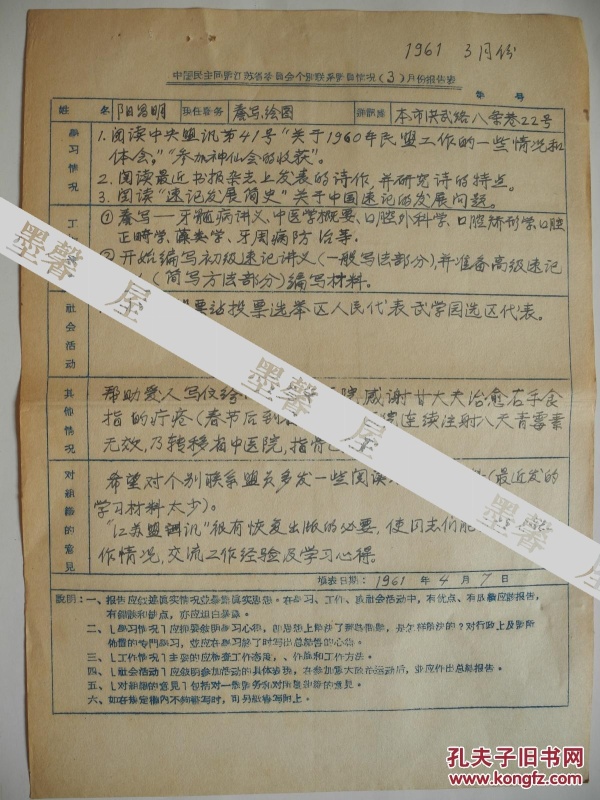 1961 3月份
中国民主同盟江苏省委员会个别联系盟员情况(3)月份报告表
编号
姓名 阳昌明 现任职务 缮写.绘图 通讯处 本市洪武路八条巷22号
学习情况
1.阅读中央盟讯第41号“关于1960年民盟工作的一些情况和
体会,”“参加神仙会的收获”。
2.阅读最近书报杂志上发表的诗作,并研究诗的特点。
3.阅读“速记发展简史”关于中国速记的发展问题。
①缮写——牙髓病讲义、中医学概要、口腔外科学、口腔矫形学、口腔
正畸学、藻类学、牙周病防治等.
②开始编写初级速记讲义(一般写法部分),并准备高级速记
(简写方法部分)编写材料。
社会活动
票站投票选举区人民代表武学园选区代表。
其他情况
帮助爱人写信给 院感谢甘大夫治愈右手食
指的疗疮(春节后到 连续注射八天青霉素
无效,乃转移省中医院,指骨
对组织的意见
希望对个别联系盟员多发一些阅读 (最近发的
学习材料太少)。
“江苏盟讯”很有恢复出版的必要,使同志们能
作情况,交流工作经验及学习心得。
填表日期:1961年4月7日
说明:一、报告应叙述真实情况并暴露真实思想。在学习、工作、及社会活动中,有优点、有成绩应该报告,
有错误和缺点,亦应坦白暴露。
二、〔学习情况〕应扼要叙明学习心得,
他搞的专门学习,并应在学习终了时写出总结性的心得。
三、〔工作情况〕主要的应检查工作态度、、作风和工作方法。
四、〔社会活动〕应叙明参加活动的具体表现,在参加重大政治运动后,并应作出总结报告。
五、〔对组织的意见〕包括对一般盟务和对所属组织的意见。
六、如在指定栏内不够缮写时,可另纸缮写附上。
墨馨屋
墨馨屋
墨馨屋
孔夫子旧书网
www.kongfz.com